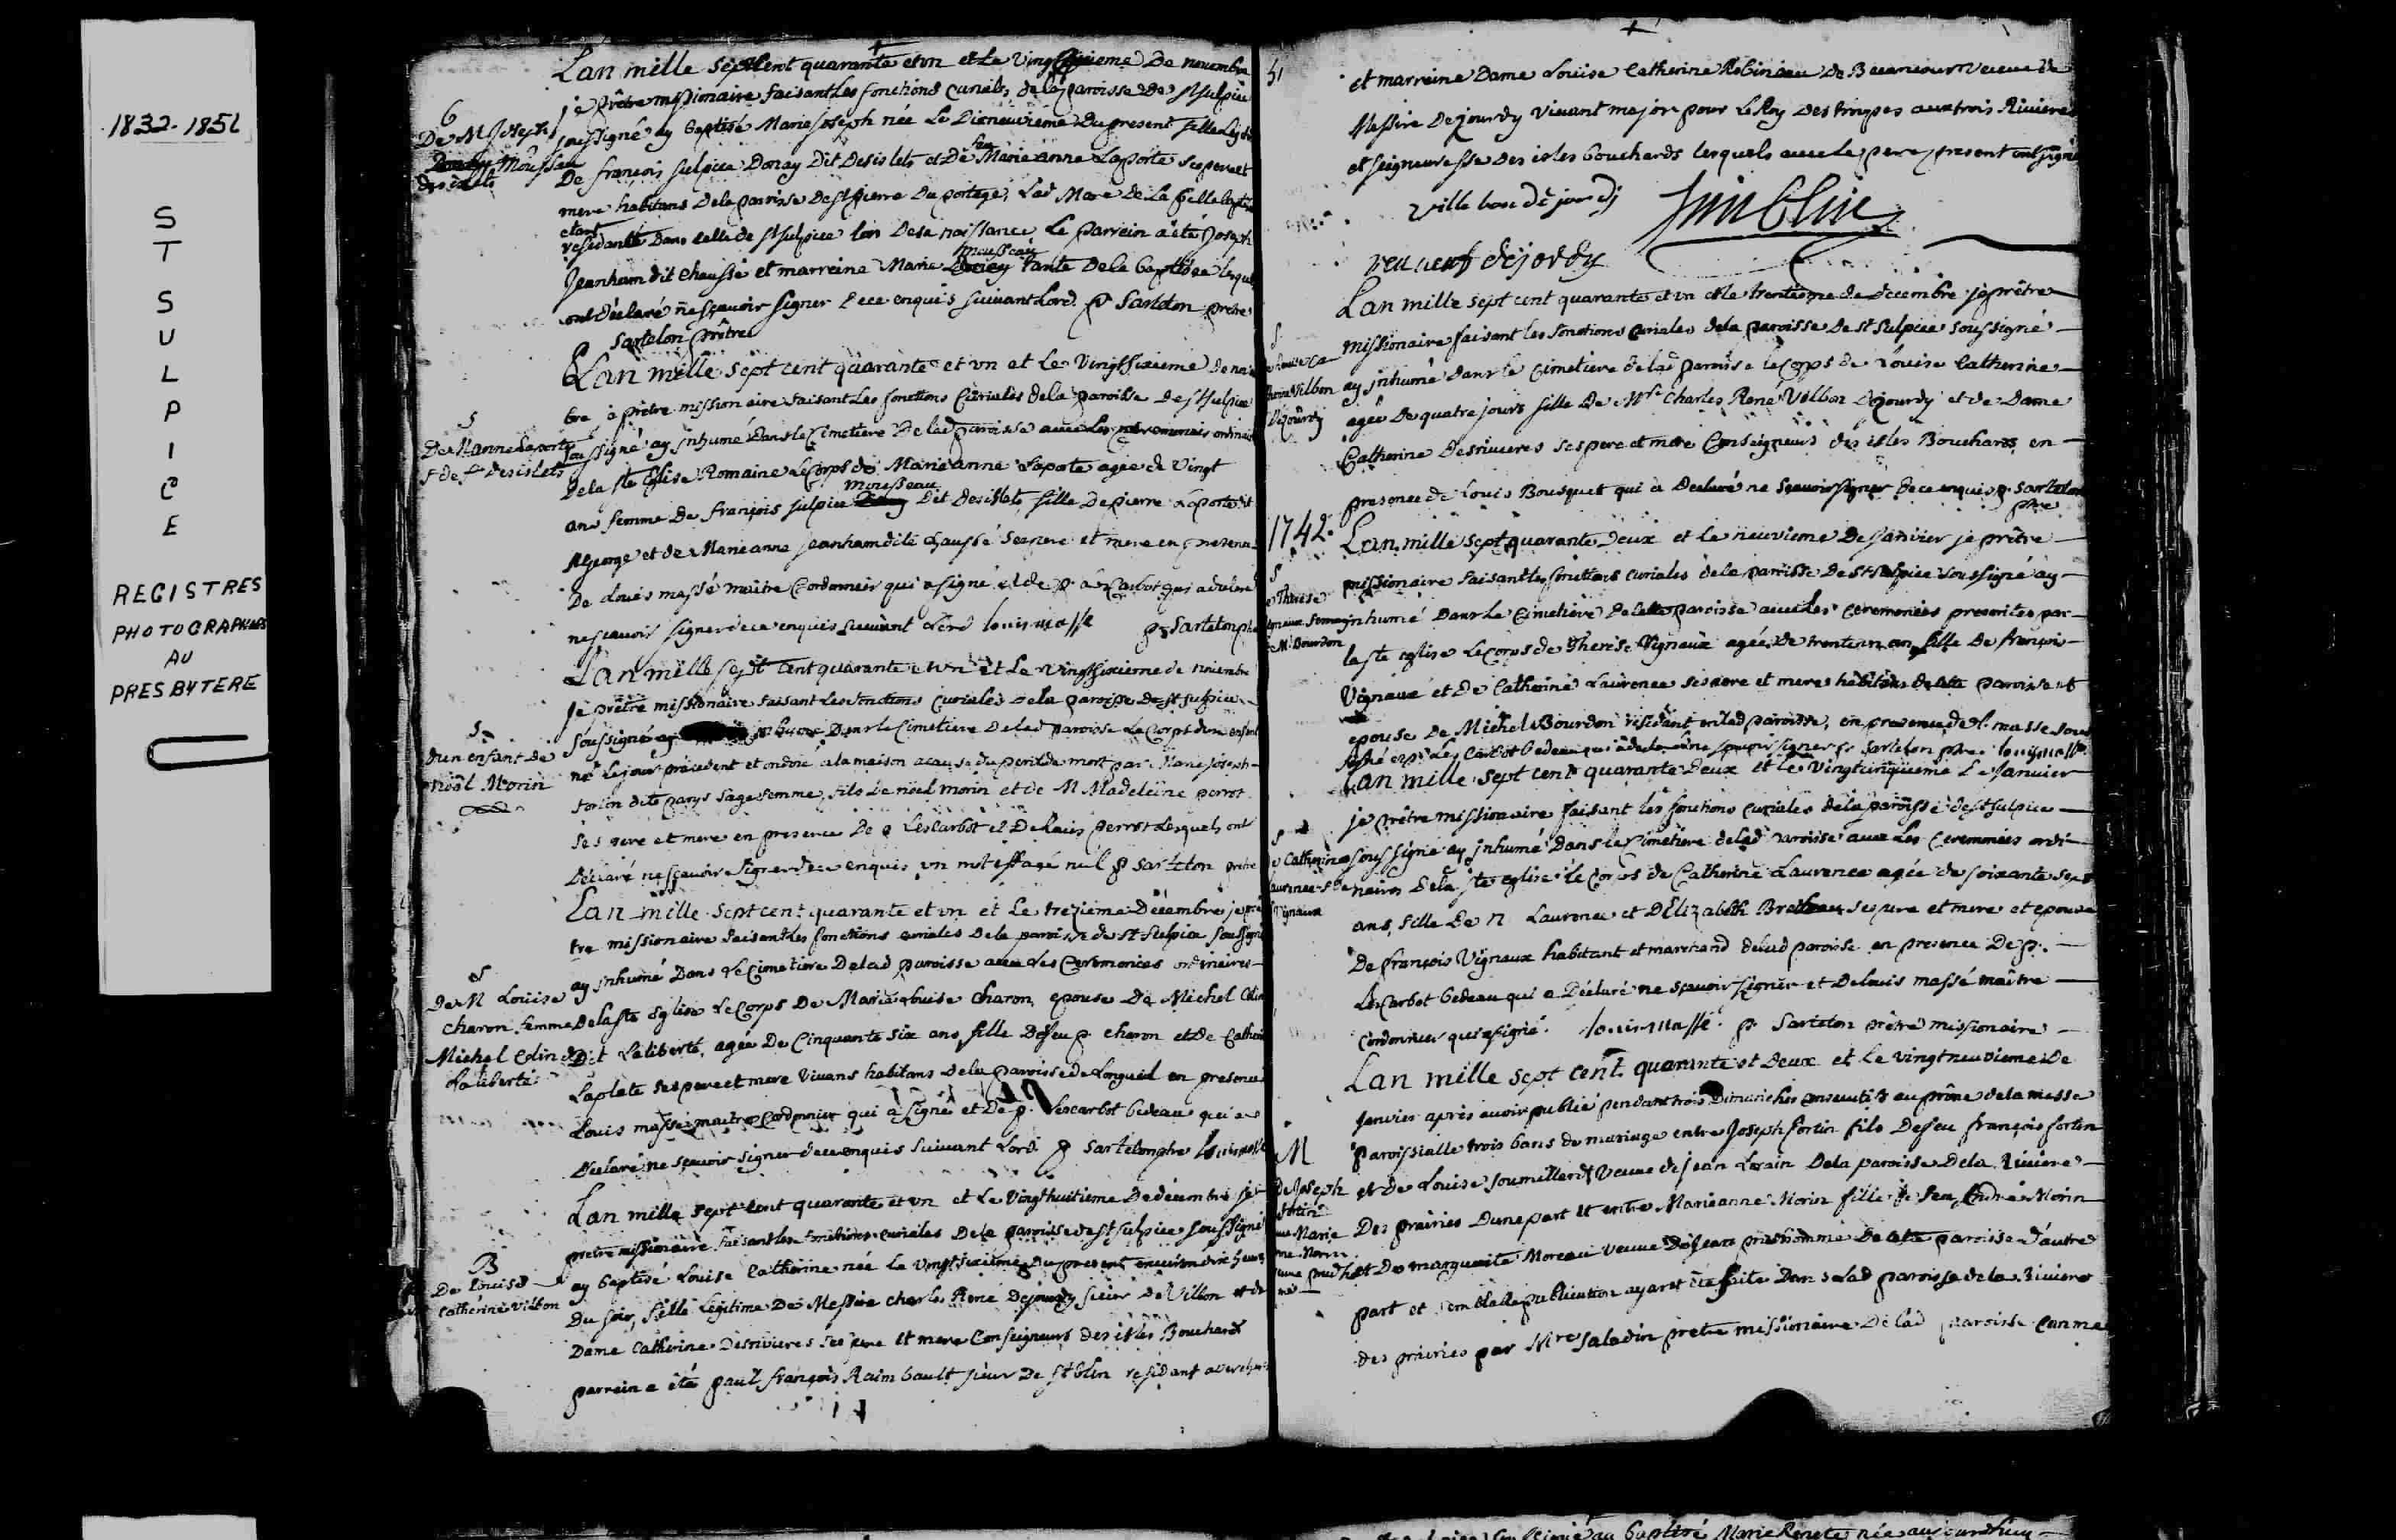 1832-1851
ST SULPICE
REGISTRES
PHOTOGRAPHIÉS
AU
PRESBYTERE
Lan mille sept Cent quarante et un et Le Vingt De novembre
je prêtre missionaire faisant Les fonctions curiales de la paroisse de st sulpice
soussigné ay baptisé Marie Joseph née Le Dixneuvieme Du present fille
De françois sulpice Donay Dit Desislets et De Marie anne Laporte ses pere et
mere habitans De la paroisse De st pierre Du portage, Lad Mere De La fille
etant
residante Dans celle de st sulpice lors De sa naissance Le parrein a été Joseph
mousseau
Jeanham dit Chaussé et marreine Marie tante De la baptisée lesquels
ont déclaré ne sçavoir signer De ce enquis suivant Lord. p Sartelon prêtre
Sartelon prêtre
6
De M Joseph
Mousseau
Desislets
Lan mille sept cent quarante et un et Le Vingtsixieme De
bre je prêtre missionaire faisant Les fonctions Curiales de la paroisse De st sulpice
soussigné ay inhumé Dans le Cimetiere De lad paroisse avec Les ceremonies ordinaires
De la ste Eglise Romaine Le Corps de Marie anne Laporte agée de Vingt
mousseau
ans femme De françois sulpice Dit Desislets, fille De pierre Laporte dit
st George et de Marie anne Jeanham dite Chaussé ses pere et mere en presence
De Louis massé maître Cordonnier qui a signé et de p Lescarbot qui a declaré
ne sçavoir signer de ce enquis suivant Lord louis massé p Sartelon ptre
S
De M anne Laporte
f de fr Desislets
Lan mille sept Cent quarante et un et Le Vingtsixieme de novembre
je prêtre missionaire faisant Les fonctions Curiales de la paroisse De st sulpice
soussigné ay inhumé Dans le Cimetiere De lad paroisse Le Corps dun enfant
né Le jour précedent et ondoié a la maison a cause du peril de mort par Marie Joseph
fortin dite parys sage femme, fils De noël morin et de M Madeleine perrot
ses pere et mere en presence De p Lescarbot et De Louis perrot Lesquels ont
Déclaré ne sçavoir signer de ce enquis un mot effacé nul p Sartelon prêtre
S
dun enfant de
noël Morin
Lan mille sept cent quarante et un et Le treizieme Décembre je prê
tre missionaire faisant Les fonctions curiales De la paroisse de st sulpice soussigné
ay inhumé Dans Le Cimetiere De lad paroisse avec Les Ceremonies ordinaires
De la ste Eglise Le Corps De Marie Louise Charon, epouse De Michel Colin
Dit Laliberté, agée De Cinquante six ans, fille De feu p Charon et De Catherine
Laplate ses pere et mere Vivans habitans De la paroisse de Longueil en presence
Louis massé maitre Cordonnier qui a signé et De p. Lescarbot bedeau qui a
Déclaré ne sçavoir signer de ce enquis suivant Lord p Sartelon ptre Louis massé
S
De M Louise
Charon femme
Michel Colin
Laliberté
Lan mille sept Cent quarante et un et Le Vingthuitieme De décembre je
prêtre missionaire faisant les fonctions curiales De la paroisse de st sulpice soussigné
ay baptisé Louise Catherine née Le Vingtsixieme Du present environ dix heures
Du soir, fille legitime De Messire Charles René Dejourdy sieur De Villon et de
Dame Catherine Desrivieres ses pere et mere Conseigneurs Des isles Bouchard
parrein a été paul françois Raimbault sieur De st blin residant a Vercheres
B
De Louise
Catherine Villbon
et marreine Dame Louise Catherine Robineau De Becancour Veuve de
Messire Dejourdy Vivant major pour Le Roy Des troupes aux trois Rivieres
et seigneuresse Des isles bouchards lesquels avec Le pere present ont signé
Ville bon de jordy
veu dejordy
Lan mille sept cent quarante et un et le trentieme de Décembre je prêtre
missionaire faisant les fonctions curiales de la paroisse De st sulpice soussigné
ay inhumé dans le Cimetiere de lad paroisse le Corps de Louise Catherine
agée De quatre jours fille De Mre Charles René Villbon Dejourdy et de Dame
Catherine Desrivieres ses pere et mere Conseigneurs des isles Bouchards en
presence de Louis Bousquet qui a Declaré ne sçavoir signer de ce enquis p. Sartelon
ptre
Vilbon
Dejourdy
1742.
Lan mille sept quarante Deux et Le neuvieme De Janvier je prêtre
missionaire faisant les fonctions curiales de la paroisse De st sulpice soussigné ay
inhumé Dans Le Cimetiere De cette paroisse avec Les ceremonies prescrites par
la ste eglise Le Corps de Therese Vignaux agée De trente un an fille De françois
Vignaux et De Catherine Laurence ses pere et mere habitans de cette paroisse et
epouse De Michel Bourdon residant en lad paroisse, en presence de L. massé sous
signé et p Lescarbot bedeau qui a declaré ne sçavoir signer p Sartelon ptre. louis massé
S
Therese
femme
M. Bourdon
Lan mille sept cent quarante Deux et le vingtcinquieme De Janvier
je prêtre missionaire faisant les fonctions curiales de la paroisse de st sulpice
soussigné ay inhumé Dans le Cimetiere de lad paroisse avec Les Ceremonies ordi
naires De la ste eglise le Corps de Catherine Laurence agée de soixante sept
ans, fille De n Laurence et D'Elizabeth ses pere et mere et epouse
De françois Vignaux habitant et marchand de lad paroisse en presence De p.
Lescarbot bedeau qui a Déclaré ne sçavoir signer et De louis massé maître
Cordonnier qui a signé. louis massé. p Sartelon prêtre missionaire
S
Catherine
Laurence
Vignaux
Lan mille sept cent quarante et Deux et Le vingtneuvieme De
Janvier après avoir publié pendant trois Dimanches consecutifs au prône de la messe
paroissialle trois bans de mariage entre Joseph fortin fils De feu françois fortin
et de Louise soumillard Veuve de jean Lorain De la paroisse De la Riviere
Des prairies Dune part et entre Marie anne Morin fille de feu André Morin
et De marguerite Moreau veuve De jean prudhomme De cette paroisse D'autre
part et semblable publication ayant été faite Dans lad paroisse de la Riviere
des prairies par Mre Saladin prêtre missionaire De lad paroisse comme
M
De Joseph
fortin
Marie
Morin
baptisé Marie Renete née aujourdhuy